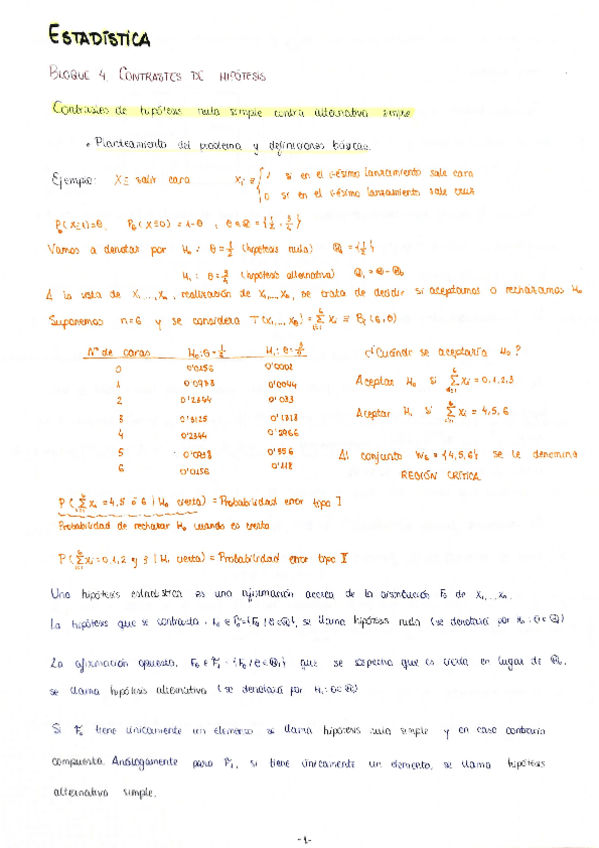 ESTADÍSTICA
BLOQUE 4. CONTRASTES DE HIPÓTESIS
Contrastes de hipótesis nula simple contra alternativa simple
• Planteamiento del problema y definiciones básicas.
Ejemplo: X ≡ salir cara Xi = { 1 si en el i-ésimo lanzamiento sale cara
0 si en el i-ésimo lanzamiento sale cruz
Pθ(X=1)=θ, Pθ(X=0)=1-θ, θ∈Θ={1/2, 3/4}
Vamos a denotar por H₀: θ=1/2 (hipótesis nula) Θ₀={1/2}
H₁: θ=3/4 (hipótesis alternativa) Θ₁=Θ-Θ₀
A la vista de X₁,...,Xn, realización de X₁,...,Xn, se trata de decidir si aceptamos o rechazamos H₀
Suponemos n=6 y se considera T(X₁,...,X₆)=Σxi ≡ B(6,θ)
Nº de caras H₀:θ=1/2 H₁:θ=3/4 ¿Cuándo se aceptaría H₀?
0 0'0156 0'0002
1 0'0938 0'0044 Aceptar H₀ si Σxi=0,1,2,3
2 0'2344 0'033
3 0'3125 0'1318 Aceptar H₁ si Σxi=4,5,6
4 0'2344 0'2966
5 0'0938 0'356 Al conjunto W₆={4,5,6} se le denomina
6 0'0156 0'178 REGIÓN CRÍTICA
P(Σxi=4,5 ó 6 | H₀ cierta) = Probabilidad error tipo I
Probabilidad de rechazar H₀ cuando es cierta
P(Σxi=0,1,2 y 3 | H₁ cierta) = Probabilidad error tipo II
Una hipótesis estadística es una afirmación acerca de la distribución Fθ de X₁,...,Xn.
La hipótesis que se contrasta, {Fθ/θ∈Θ₀}, se llama hipótesis nula (se denotará por H₀: θ∈Θ₀)
La afirmación opuesta, {Fθ/θ∈Θ₁} que se sospecha que es cierta en lugar de
se llama hipótesis alternativa (se denotará por H₁: θ∈Θ₁)
Si F₀ tiene únicamente un elemento se llama hipótesis nula simple y en caso contrario
compuesta. Análogamente para F₁, si tiene únicamente un elemento, se llama hipótesis
alternativa simple.
-1-